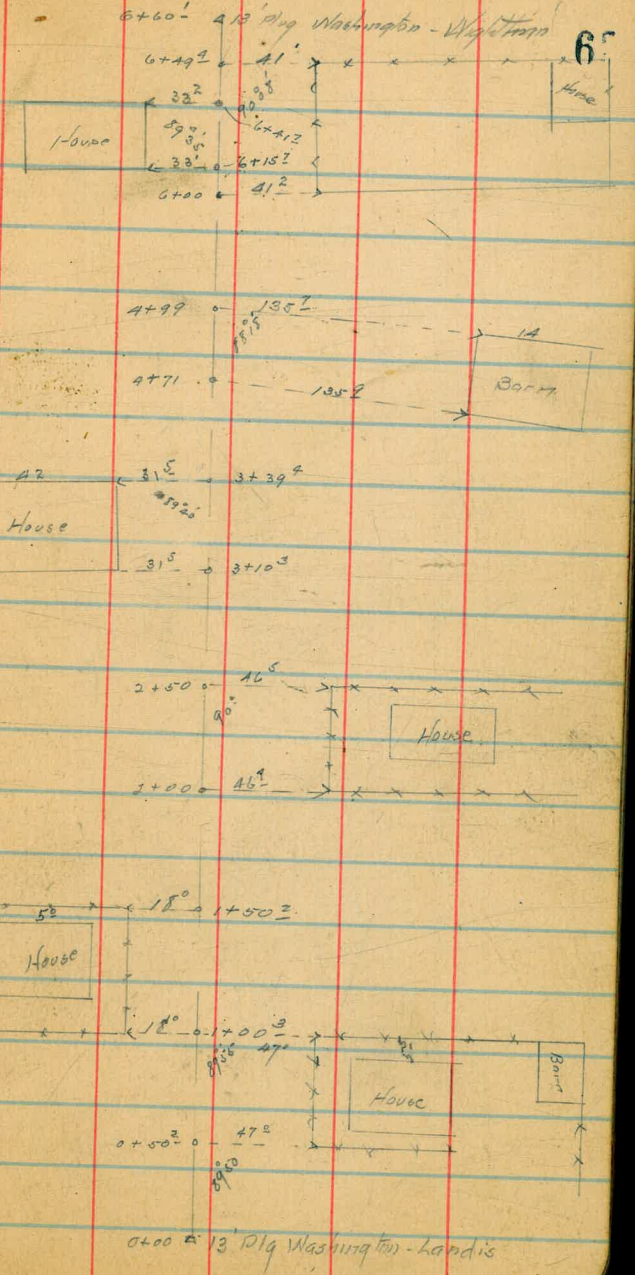 6+60' 13' Plg Washington - Wightman
65
6+49⁴ 41' House
33² 90°38'
House 89°35' 6+41²
33' 6+15²
6+00 41²
4+99 135⁷ 14
88°15'
4+71 135⁹ Barn
42 31⁵ 3+39⁴
89°20'
House
31⁵ 3+10³
2+50 46⁵
90° House
2+00 46⁴
5⁰ 18⁰ 1+50²
House
18⁰ 1+00³ 47⁰
House Barn
0+50² 47⁰
89°50
0+00 13' Plg Washington - Landis